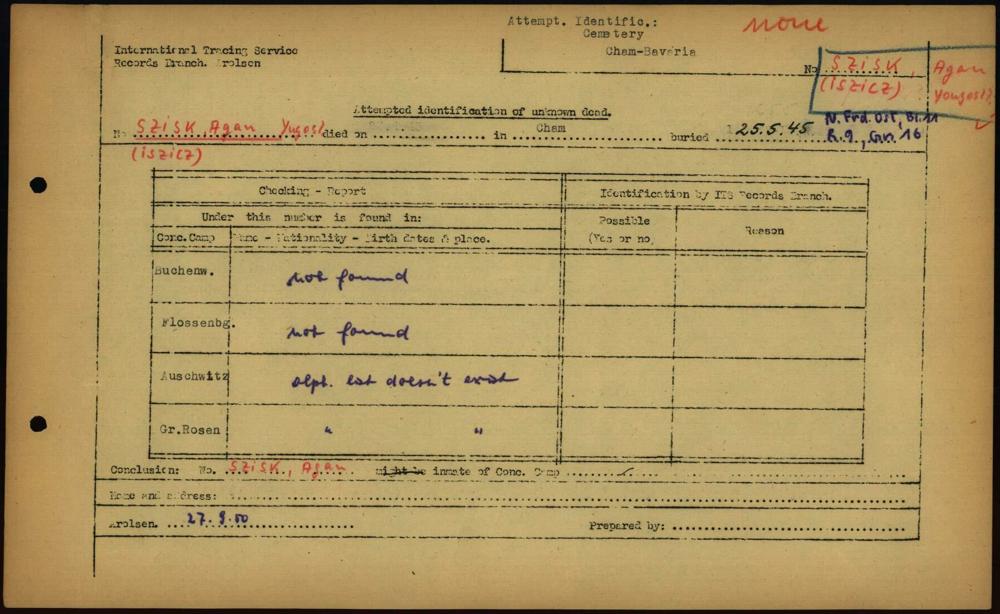 Attempt. Identific.:
none
Cemetery
Cham-Bavaria
International Tracing Service
Records Branch. Arolsen
No SZISK, Agan
(iSZiCZ) Yougosl?
Attempted identification of unknown dead.
N. Frd. Ost, Bl. 11
No SZISK, Agan Yugosl died on in Cham buried 25.5.45 R. 9, Gr. 16
(iSZiCZ)
Checking - Report
Identification by ITS Records Branch.
Under this number is found in:
Possible
Reason
Conc.Camp Name - Nationality - Birth dates & place.
(Yes or no)
Buchenw. not found
Flossenbg. not found
Auschwitz alph. list doesn't exist
Gr.Rosen " "
Conclusion: No. SZISK, Agan might be inmate of Conc. Camp
Name and address:
Arolsen. 27.9.50
Prepared by: